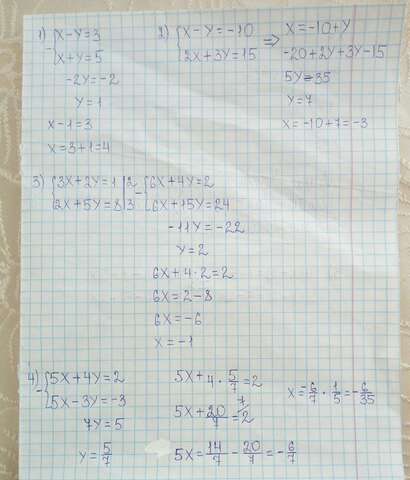 1) -{x-y=3
x+y=5
-2y=-2
y=1
x-1=3
x=3+1=4
2) {x-y=-10
2x+3y=15 =>
x=-10+y
-20+2y+3y-15
5y=35
y=7
x=-10+7=-3
3) {3x+2y=1 |2
2x+5y=8|3
-{6x+4y=2
6x+15y=24
-11y=-22
y=2
6x+4·2=2
6x=2-8
6x=-6
x=-1
4) -{5x+4y=2
5x-3y=-3
7y=5
y=5/7
5x+4·5/7=2
5x+20/7=2
5x=14/7-20/7=-6/7
x=-6/7·1/5=-6/35